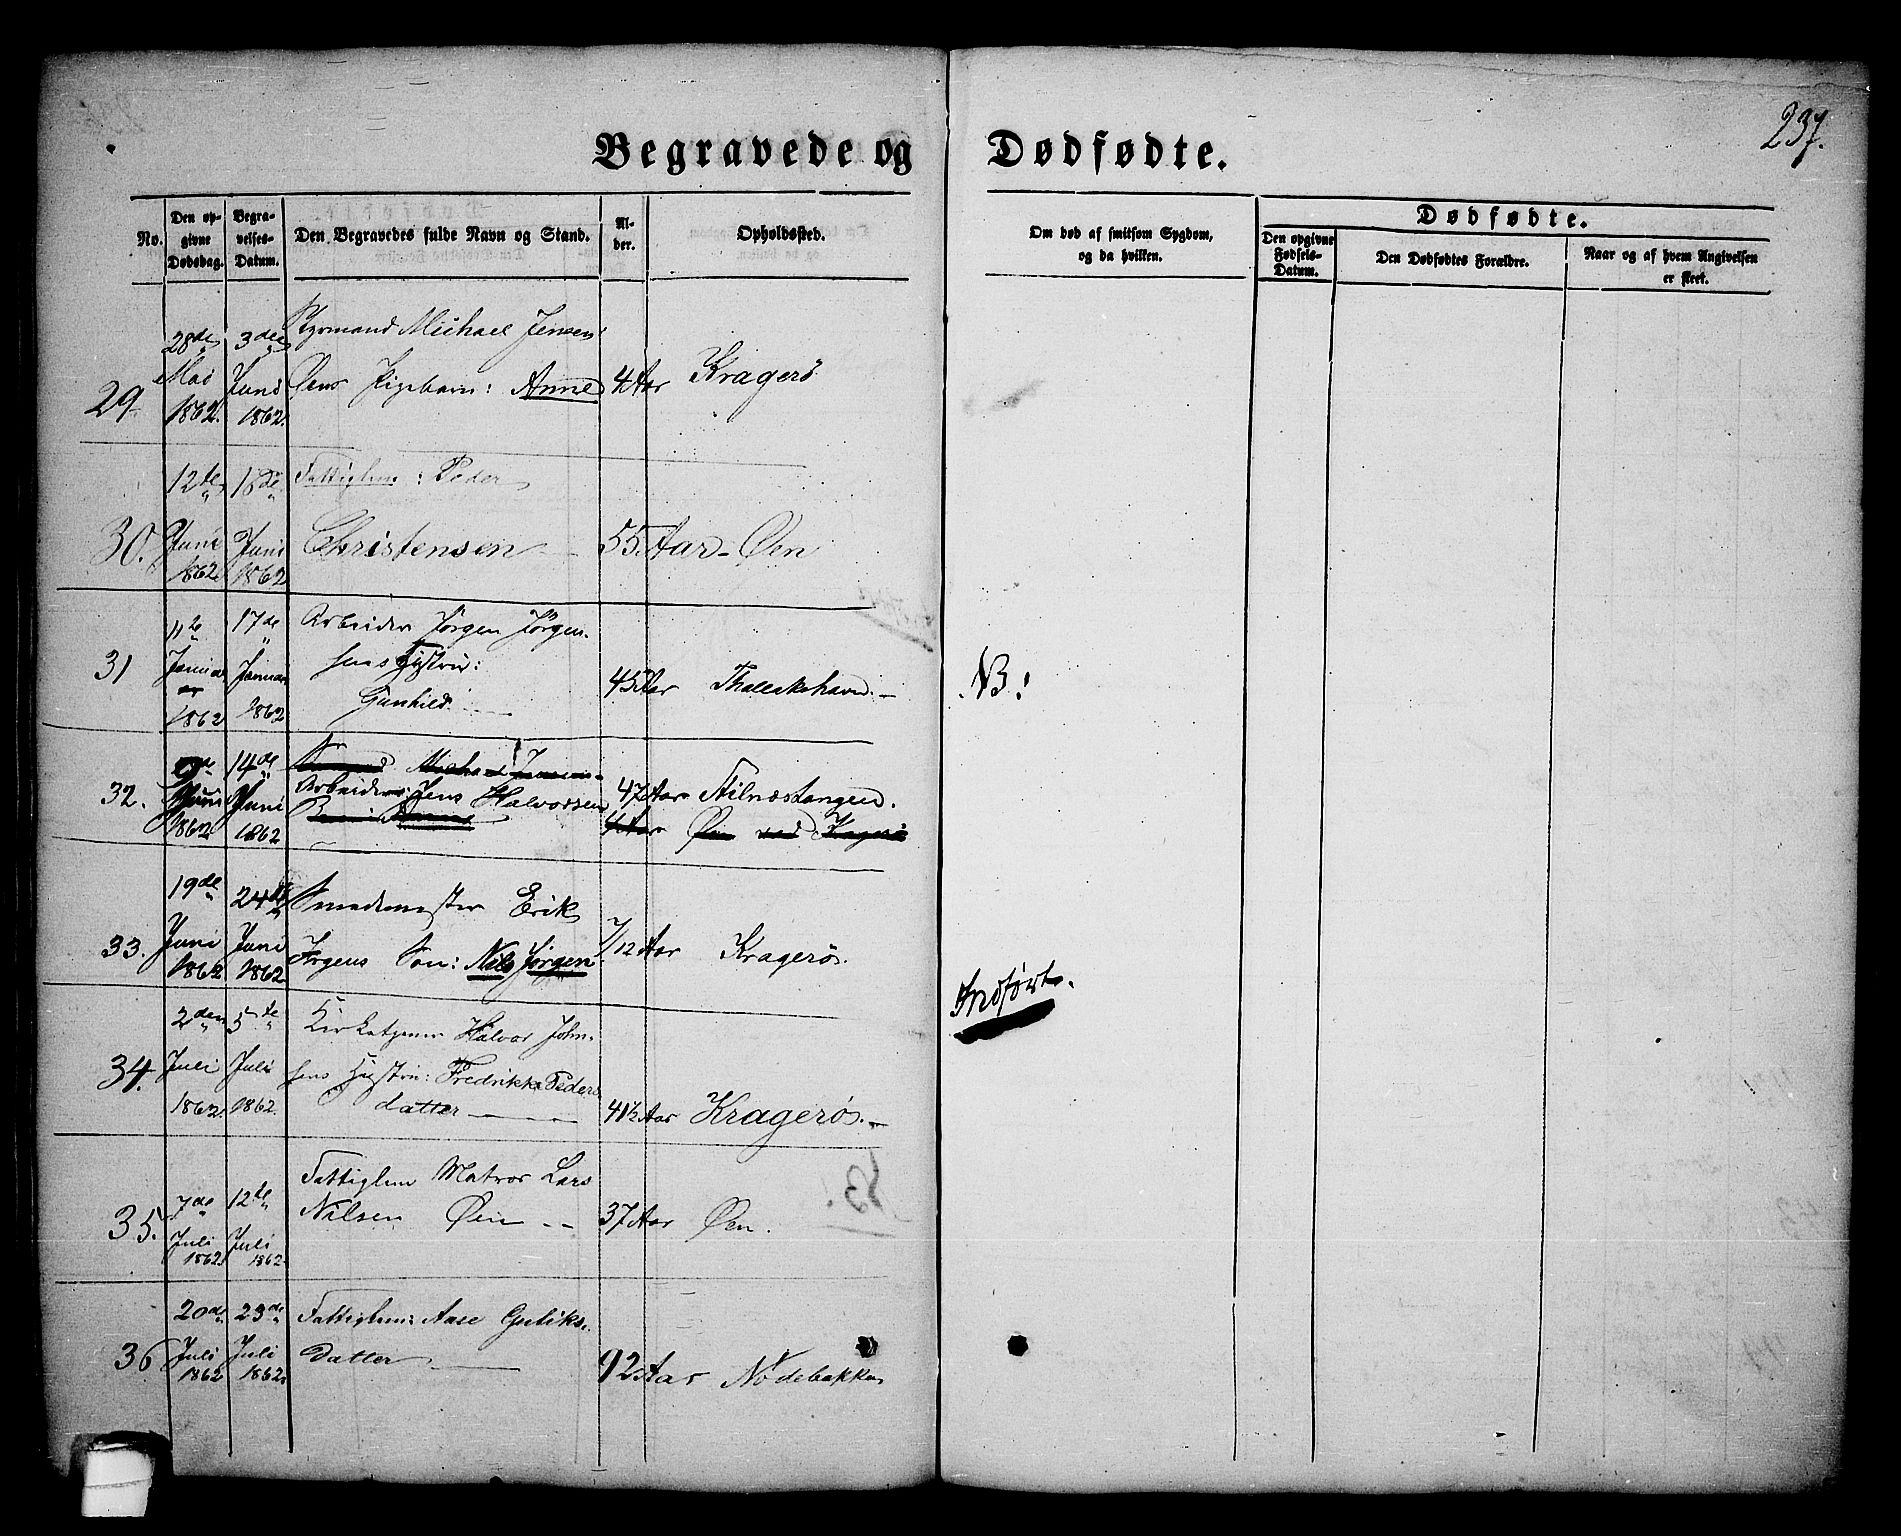 237.
Begravede og Dødfødte.
No.
Den opgivne Dødsdag.
Begravelses-Datum.
Den Begravedes fulde Navn og Stand.
Alder.
Opholdssted.
Om død af smitsom Sygdom, og da hvilken.
Dødfødte.
Den opgivne Fødsels-Datum.
Den Dødfødtes Forældre.
Naar og af hvem Angivelsen er skeet.
28de 3die Styrmand Michael Jensen
29. Mai Juni Øens Pigebarn: Anne 4 Aar Kragerö
1862. 1862.
12te 18de Fattiglem: Peder
30. Juni Juni Christensen 55 Aar Øen
1862 1862
11te 17de Arbeider Jørgen Jörgen-
31 Januar Januar sens Hustru: 45 Aar
1862 1862 Gunhild
NB!
9de 14de
32. Juni Juni Arbeider Jens Halvorsen 47 Aar Stilnæstangen.
1862 1862 4 Aar Øen ved Kragerø
19de 24de Smedemester Erik
33. Juni Juni Søn: Nils Jörgen 7/12 Aar Kragerø.
1862 1862
Indført.
2den 5te Halvor John-
34. Juli Juli sens Hustru: Fredrikke Peders-
1862. 1862 datter 41½ Aar Kragerø.
7de 12te Fattiglem Matros Lars
35. Juli Juli Nilsen Øen 37 Aar Øen.
1862. 1862.
20de 23de Fattiglem: Aase Guliks-
36 Juli Juli datter 92 Aar Nödebakken
1862 1862.